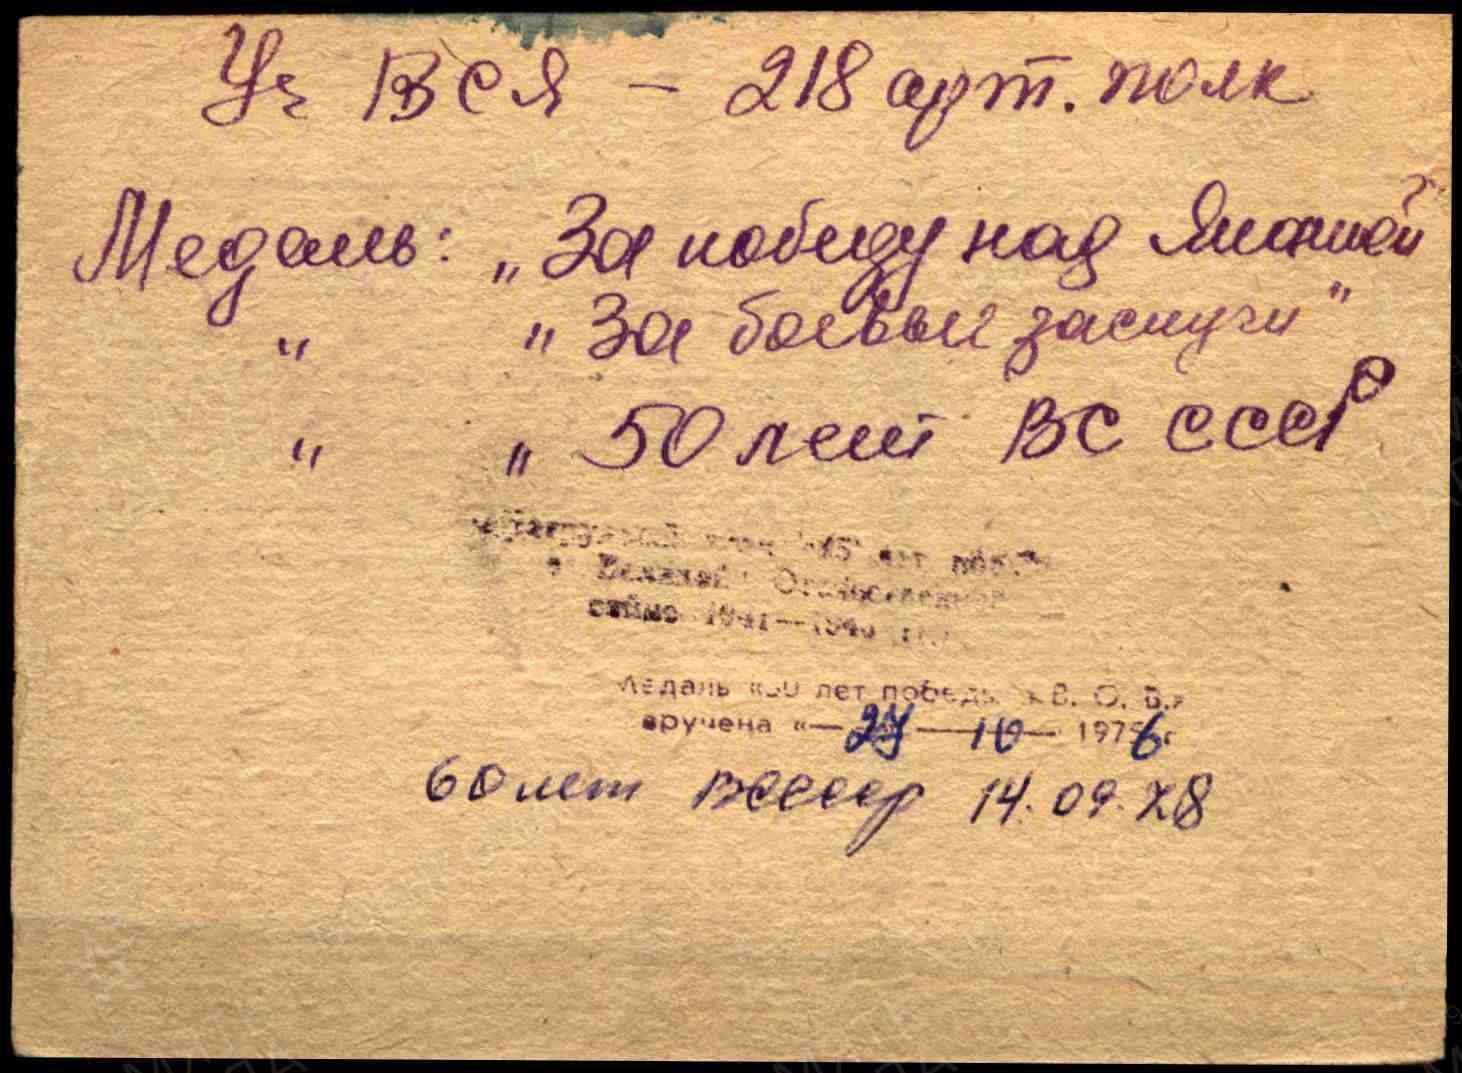 Уч ВСЯ – 218 арт. полк
Медаль: „За победу над Японией"
" „За боевые заслуги"
" „50 лет ВС СССР
"25" лет
в Великой Отечественной
войне 1941—1945 гг.
Медаль «30 лет победы в В. О. В.»
вручена «— 27 — 10 — 1976 г
60 лет ВСССР 14.09.78